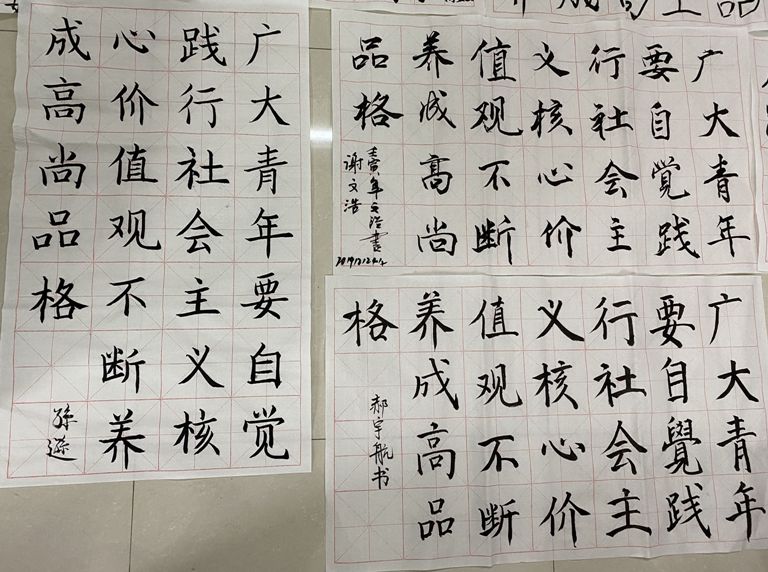 广大青年要自觉
践行社会主义核
心价值观不断养
成高尚品格
广大青年
要自覺践
行社会主
义核心价
值观不断
养成高尚
品格
壬寅年文浩書
谢文浩
广大青年
要自覺践
行社会主
义核心价
值观不断
养成高品
格
郝宇航书